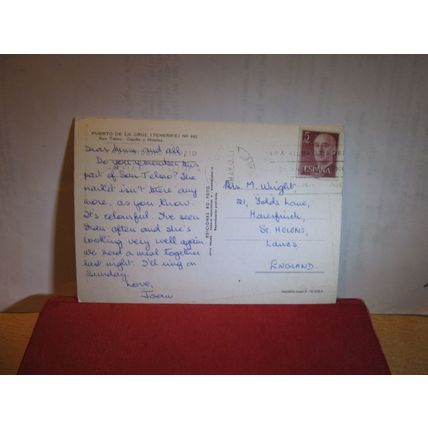 PUERTO DE LA CRUZ (TENERIFE)
San Telmo. Capilla y Hoteles
Dear and all
Do you remember this
part of San Telmo? The
isn't there any
more, as you know.
It's colourful. I've seen
often and she's
looking very well again
we had a meal together
last night. I'll ring on
Sunday.
Love,
Joan
5
ESPAÑA
Mrs. M. Wright,
21, Lane,
St. HELENS,
LANCS
ENGLAND